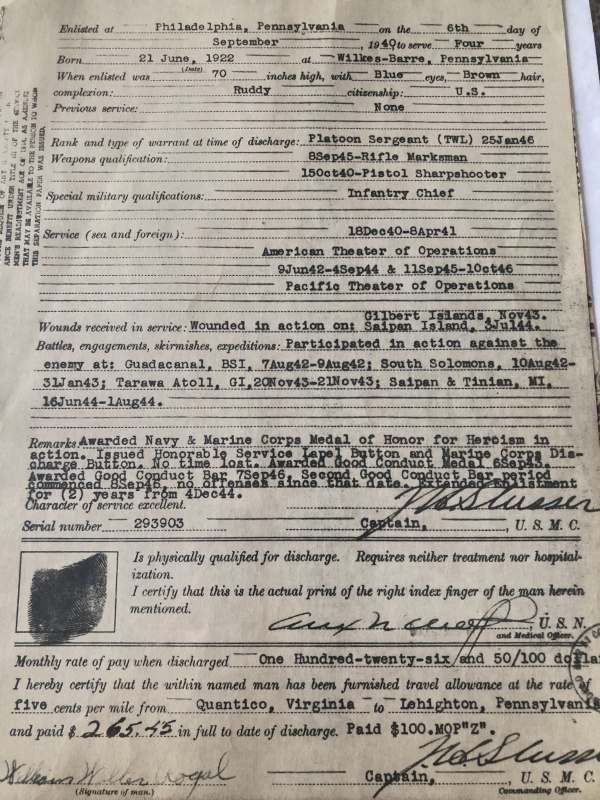 Enlisted at Philadelphia, Pennsylvania on the 6th day of
September, 1940 to serve Four years
Born 21 June, 1922 at Wilkes-Barre, Pennsylvania
(Date)
When enlisted was 70 inches high, with Blue eyes, Brown hair,
complexion: Ruddy citizenship: U.S.
Previous service: None
Rank and type of warrant at time of discharge: Platoon Sergeant (TWL) 25Jan46
Weapons qualification: 8Sep45-Rifle Marksman
15Oct40-Pistol Sharpshooter
Special military qualifications: Infantry Chief
Service (sea and foreign): 18Dec40-8Apr41
American Theater of Operations
9Jun42-4Sep44 & 11Sep45-10ct46
Pacific Theater of Operations
Gilbert Islands, Nov43.
Wounds received in service: Wounded in action on; Saipan Island, 3Jul44.
Battles, engagements, skirmishes, expeditions: Participated in action against the
enemy at: Guadacanal, BSI, 7Aug42-9Aug42; South Solomons, 10Aug42-
31Jan43; Tarawa Atoll, GI, 20Nov43-21Nov43; Saipan & Tinian, MI,
16Jun44-1Aug44.
Remarks Awarded Navy & Marine Corps Medal of Honor for Heroism in
action. Issued Honorable Service Lapel Button and Marine Corps Dis-
charge Button. No time lost. Awarded Good Conduct Medal 6Sep43.
Awarded Good Conduct Bar 7Sep46. Second Good Conduct Bar period
commenced 8Sep46, no offenses since that date. Extended Enlistment
for (2) years from 4Dec44.
Character of service excellent.
Serial number 293903 Captain, U. S. M. C.
Is physically qualified for discharge. Requires neither treatment nor hospital-
ization.
I certify that this is the actual print of the right index finger of the man herein
mentioned.
, U. S. N.
and Medical Officer.
Monthly rate of pay when discharged One Hundred-twenty-six and 50/100 dolla
I hereby certify that the within named man has been furnished travel allowance at the rate of
five cents per mile from Quantico, Virginia to Lehighton, Pennsylvania
and paid $ 265.45 in full to date of discharge. Paid $100.MOP"Z".
William
(Signature of man.)
Captain, U. S. M. C.
Commanding Officer.
ANCE BENEFIT UNDER TITLE
MEN'S READJUSTMENT ACT OF 1944, AS AMENDED
THAT MAY BE AVAILABLE TO THE PERSON TO WHOM
THIS SEPARATION PAPER WAS ISSUED.